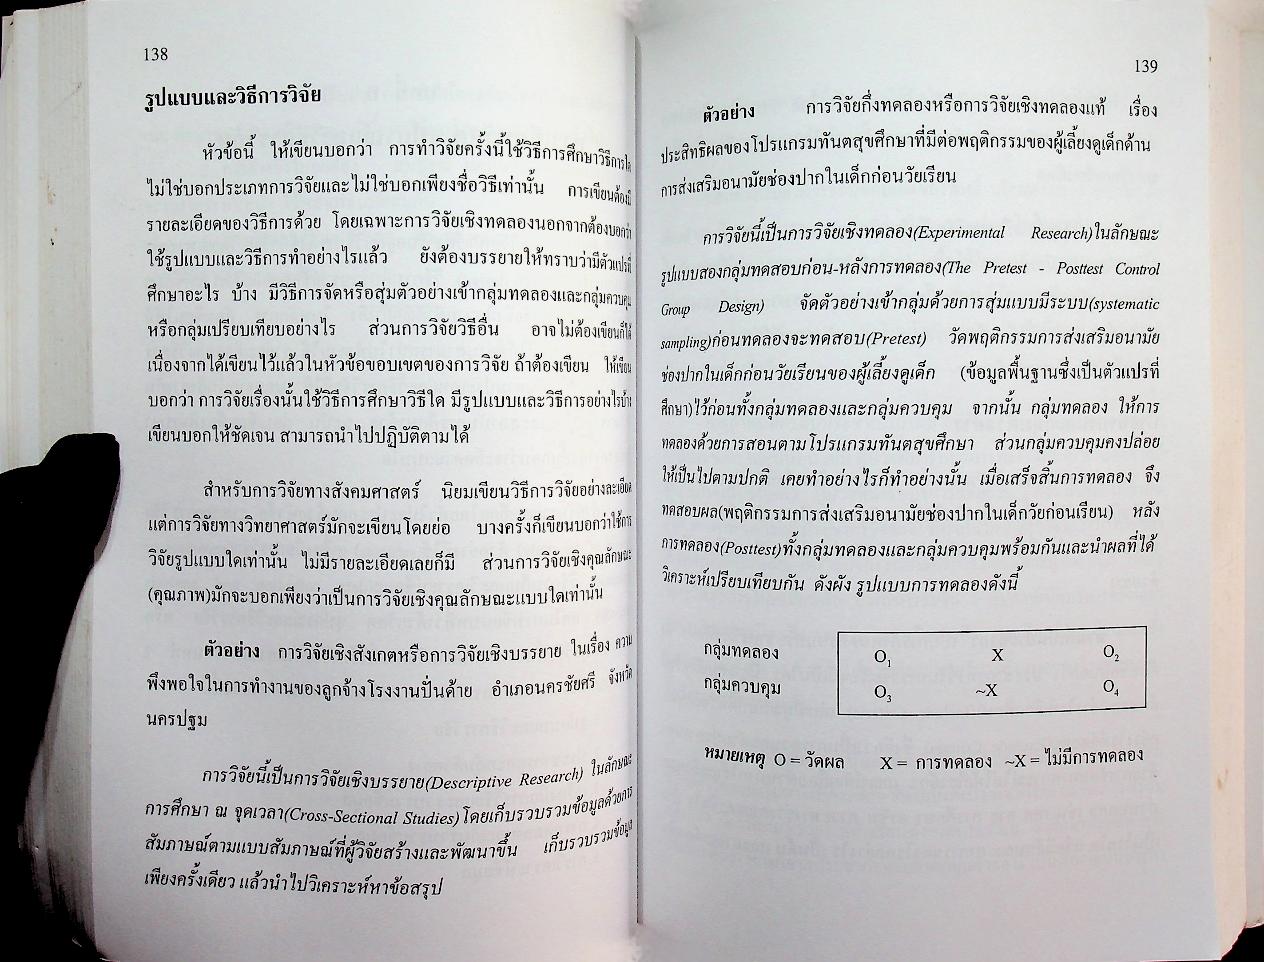 138
รูปแบบและวิธีการวิจัย
หัวข้อนี้ ให้เขียนบอกว่า การทำวิจัยครั้งนี้ใช้วิธีการศึกษาวิธีการใด
ไม่ใช่บอกประเภทการวิจัยและไม่ใช่บอกเพียงชื่อวิธีเท่านั้น การเขียนต้องมี
รายละเอียดของวิธีการด้วย โดยเฉพาะการวิจัยเชิงทดลองนอกจากต้องบอกว่า
ใช้รูปแบบและวิธีการทำอย่างไรแล้ว ยังต้องบรรยายให้ทราบว่ามีตัวแปรที่
ศึกษาอะไร บ้าง มีวิธีการจัดหรือสุ่มตัวอย่างเข้ากลุ่มทดลองและกลุ่มควบคุม
หรือกลุ่มเปรียบเทียบอย่างไร ส่วนการวิจัยวิธีอื่น อาจไม่ต้องเขียนก็ได้
เนื่องจากได้เขียนไว้แล้วในหัวข้อขอบเขตของการวิจัย ถ้าต้องเขียน ให้เขียน
บอกว่า การวิจัยเรื่องนั้นใช้วิธีการศึกษาวิธีใด มีรูปแบบและวิธีการอย่างไรบ้าง
เขียนบอกให้ชัดเจน สามารถนำไปปฏิบัติตามได้
สำหรับการวิจัยทางสังคมศาสตร์ นิยมเขียนวิธีการวิจัยอย่างละเอียด
แต่การวิจัยทางวิทยาศาสตร์มักจะเขียนโดยย่อ บางครั้งก็เขียนบอกว่าใช้การ
วิจัยรูปแบบใดเท่านั้น ไม่มีรายละเอียดเลยก็มี ส่วนการวิจัยเชิงคุณลักษณะ
(คุณภาพ)มักจะบอกเพียงว่าเป็นการวิจัยเชิงคุณลักษณะแบบใดเท่านั้น
ตัวอย่าง การวิจัยเชิงสังเกตหรือการวิจัยเชิงบรรยาย ในเรื่อง ความ
พึงพอใจในการทำงานของลูกจ้างโรงงานปั่นด้าย อำเภอนครชัยศรี จังหวัด
นครปฐม
การวิจัยนี้เป็นการวิจัยเชิงบรรยาย(Descriptive Research) ในลักษณะ
การศึกษา ณ จุดเวลา(Cross-Sectional Studies) โดยเก็บรวบรวมข้อมูลด้วยการ
สัมภาษณ์ตามแบบสัมภาษณ์ที่ผู้วิจัยสร้างและพัฒนาขึ้น เก็บรวบรวมข้อมูล
เพียงครั้งเดียว แล้วนำไปวิเคราะห์หาข้อสรุป
139
ตัวอย่าง การวิจัยกึ่งทดลองหรือการวิจัยเชิงทดลองแท้ เรื่อง
ประสิทธิผลของโปรแกรมทันตสุขศึกษาที่มีต่อพฤติกรรมของผู้เลี้ยงดูเด็กด้าน
การส่งเสริมอนามัยช่องปากในเด็กก่อนวัยเรียน
การวิจัยนี้เป็นการวิจัยเชิงทดลอง(Experimental Research)ในลักษณะ
รูปแบบสองกลุ่มทดสอบก่อน-หลังการทดลอง(The Pretest - Posttest Control
Group Design) จัดตัวอย่างเข้ากลุ่มด้วยการสุ่มแบบมีระบบ(systematic
sampling)ก่อนทดลองจะทดสอบ(Pretest) วัดพฤติกรรมการส่งเสริมอนามัย
ช่องปากในเด็กก่อนวัยเรียนของผู้เลี้ยงดูเด็ก (ข้อมูลพื้นฐานซึ่งเป็นตัวแปรที่
ศึกษา)ไว้ก่อนทั้งกลุ่มทดลองและกลุ่มควบคุม จากนั้น กลุ่มทดลอง ให้การ
ทดลองด้วยการสอนตามโปรแกรมทันตสุขศึกษา ส่วนกลุ่มควบคุมคงปล่อย
ให้เป็นไปตามปกติ เคยทำอย่างไรก็ทำอย่างนั้น เมื่อเสร็จสิ้นการทดลอง จึง
ทดสอบผล(พฤติกรรมการส่งเสริมอนามัยช่องปากในเด็กวัยก่อนเรียน) หลัง
การทดลอง(Posttest)ทั้งกลุ่มทดลองและกลุ่มควบคุมพร้อมกันและนำผลที่ได้
วิเคราะห์เปรียบเทียบกัน ดังผัง รูปแบบการทดลองดังนี้
กลุ่มทดลอง O₁ X O₂
กลุ่มควบคุม O₃ ~X O₄
หมายเหตุ O = วัดผล X = การทดลอง ~X = ไม่มีการทดลอง